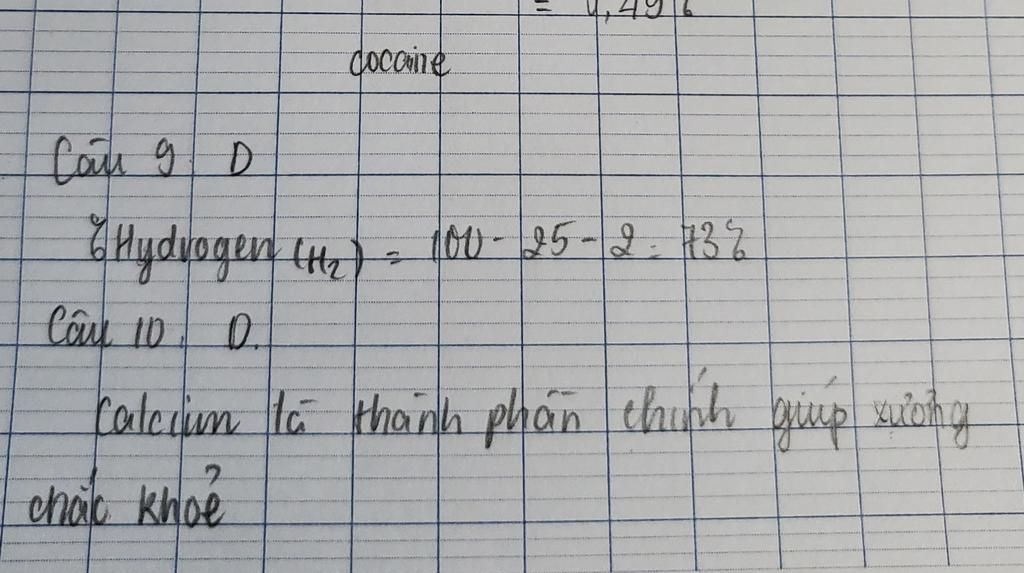 = 
cocaine
Câu 9 D
% Hydrogen (H2) = 100 - 25 - 2 = 73%
Câu 10. D.
Calcium là thành phần chính giúp xương
chắc khoẻ